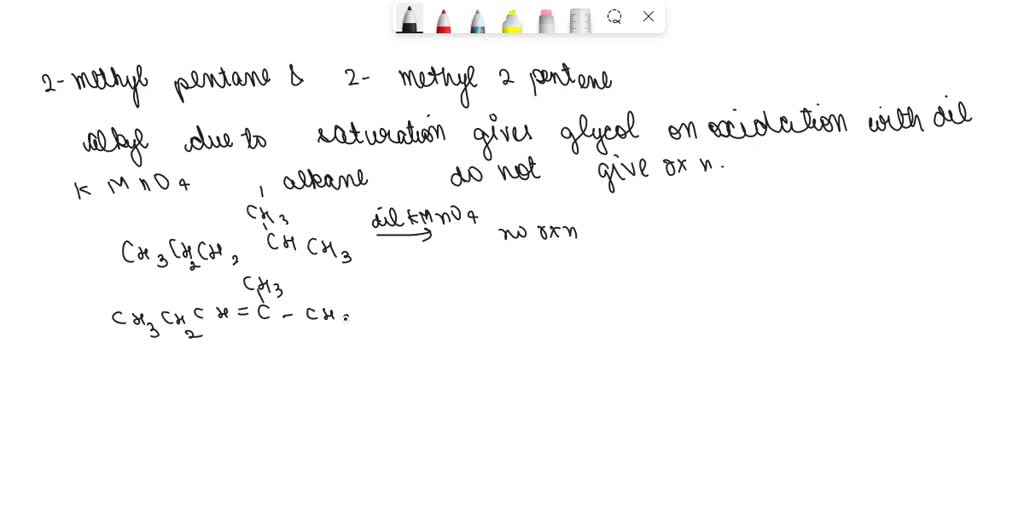 2- methyl pentane & 2- methyl 2 pentene
alkyl due to saturation gives glycol on oxidation with dil
K MnO4, alkane do not give rxn.
CH3
CH3CH2CH2 CH CH3 dil KMnO4 no rxn
CH3
CH3CH2CH = C - CH3